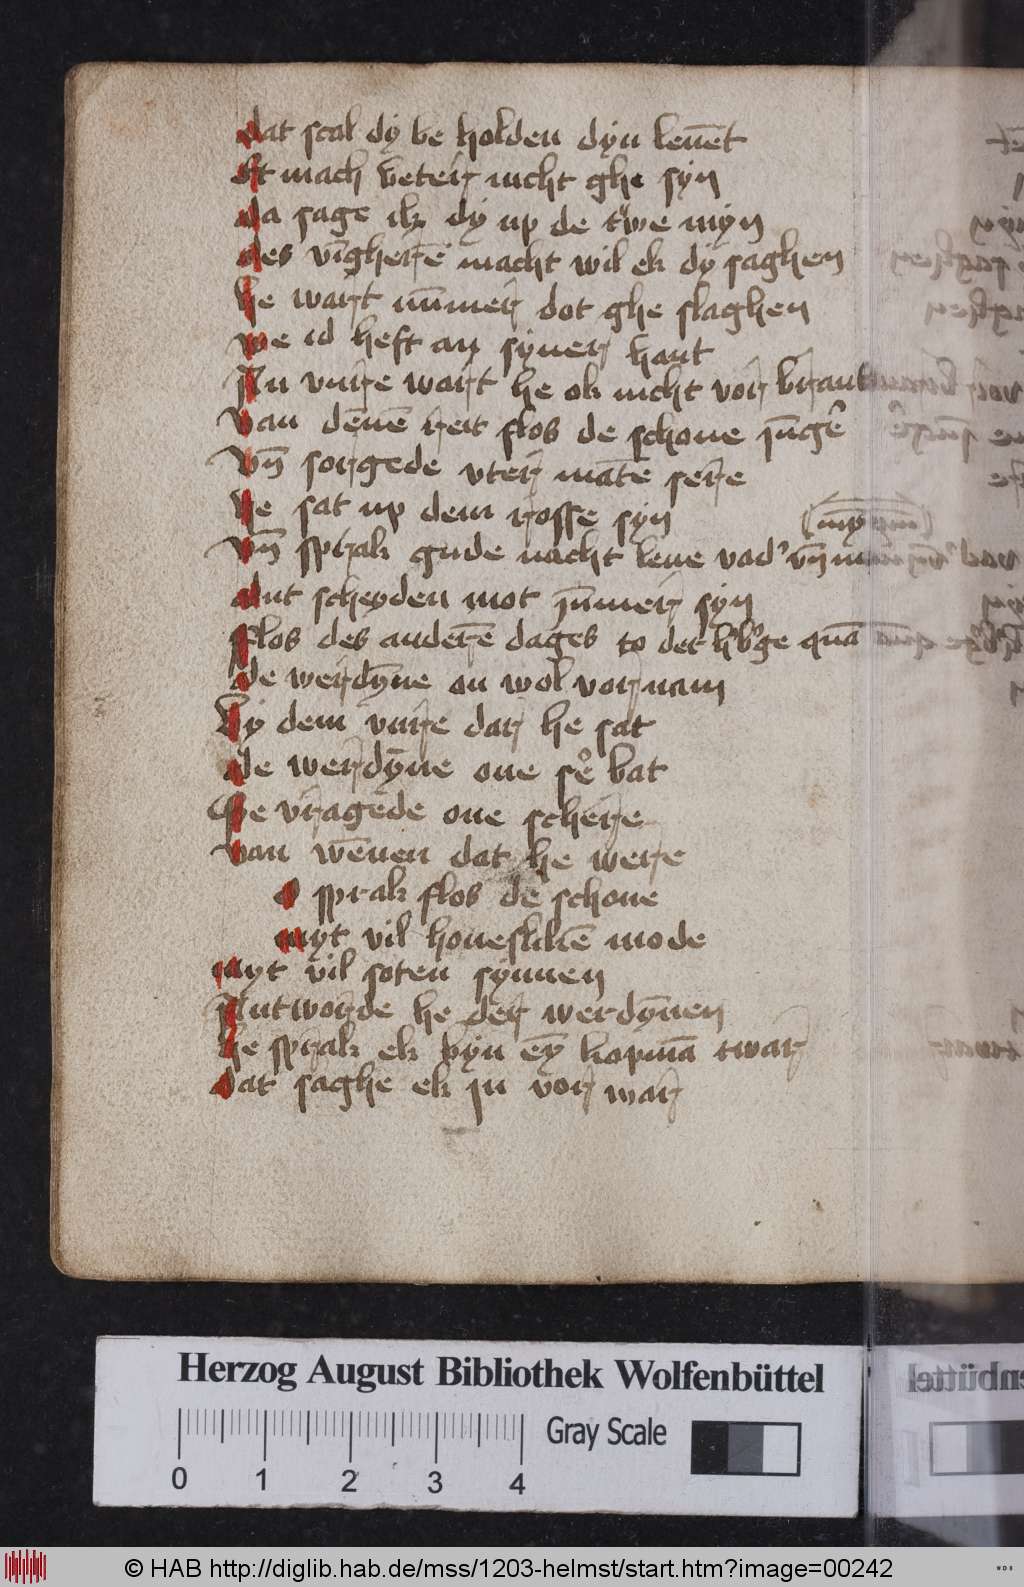 dat scal dy be holden dyn leuēt
Et mach beter nicht ghe syn
da sage ik dy up de twe myn
des vīgherē macht wil ek dy saghen
he wart nūmer dot ghe slaghen
we id heft an syner hant
In vure wart he ok nicht vor brant
Van dēnē reit flos de schone jūgē
Vn̄ sorgede vter mate sere
he sat up dem rosse syn
Vn̄ sprak gude nacht leue vad' vn̄ mod'
myn
dut scheyden mot jūmer syn
flos des anderē dages to der h'b'ge quā
de werdyne on wol vornam
By dem vure dar he sat
de werdyne one se bat
Se vragede one schere
van wēnen dat he were
o sprak flos de schone
myt vil houeslikē mode
myt vil soten synnen
Antworde he der werdȳnen
he sprak ek byn ey kopmā twar
dat saghe ek ju vor war
Herzog August Bibliothek Wolfenbüttel
0 1 2 3 4
Gray Scale
© HAB http://diglib.hab.de/mss/1203-helmst/start.htm?image=00242